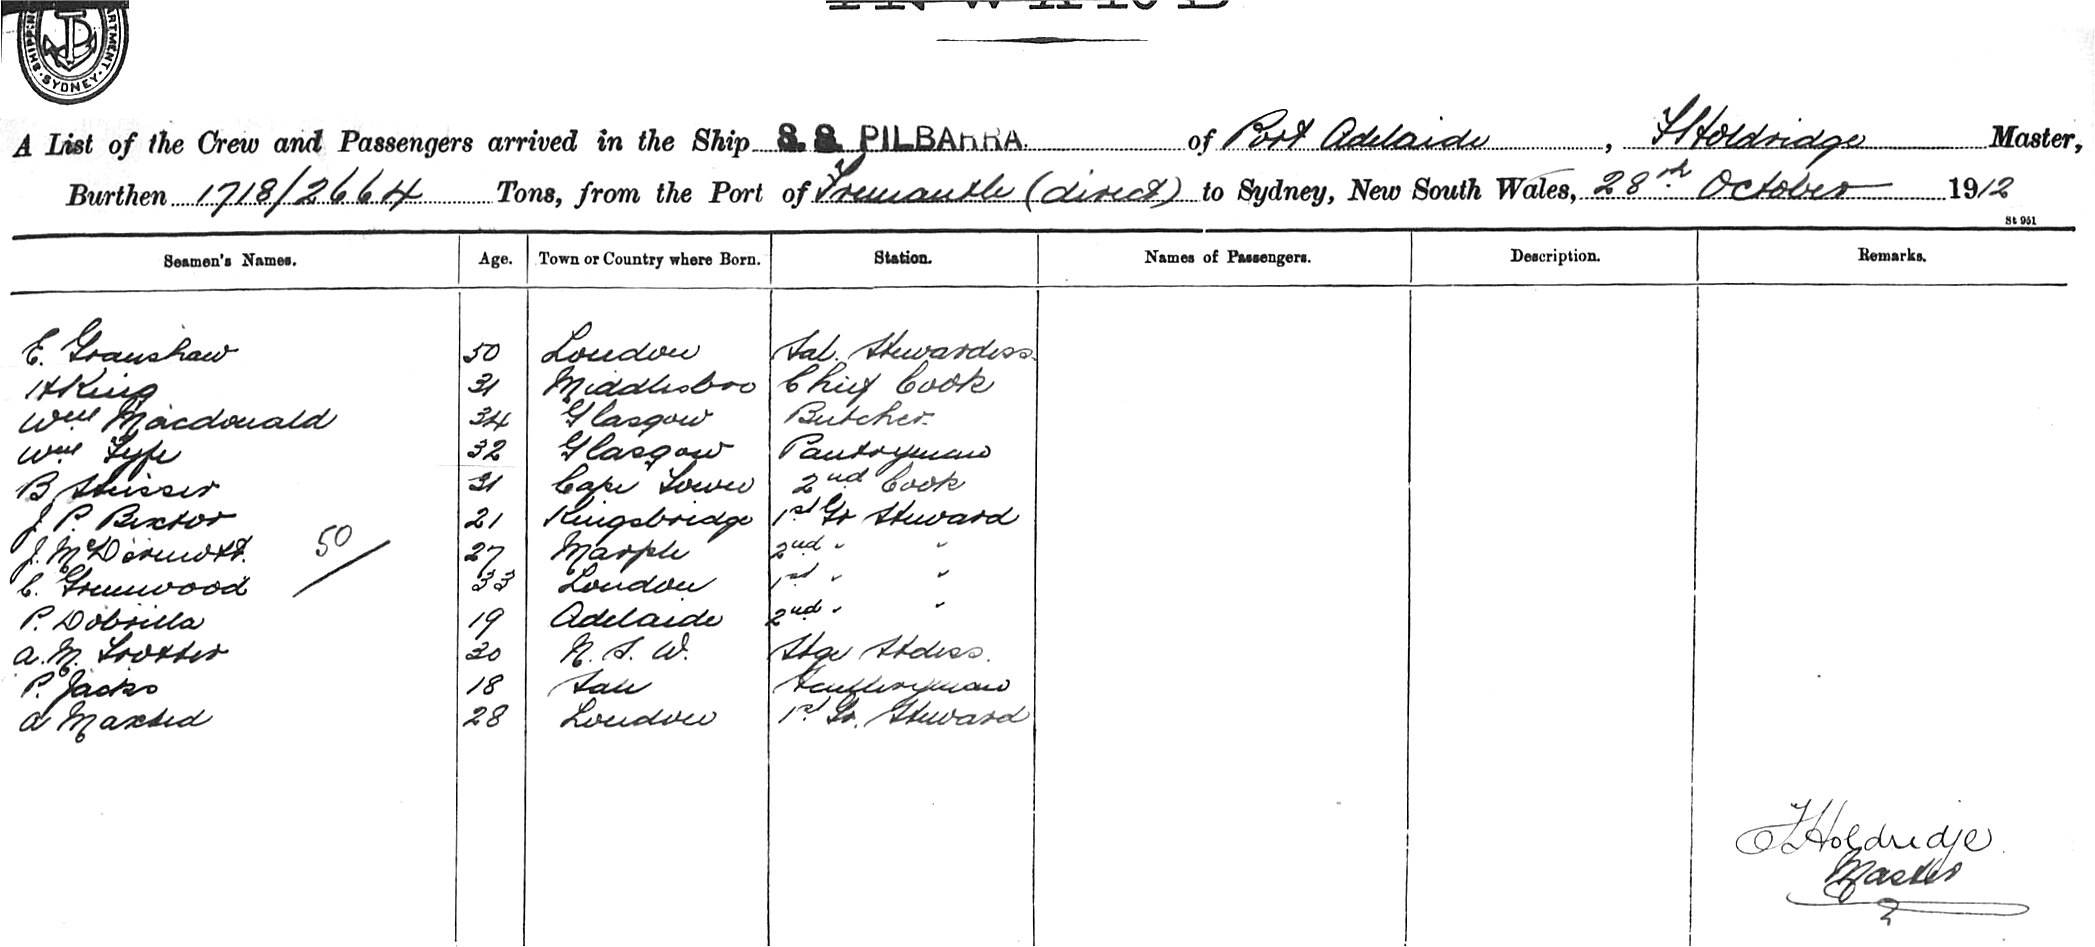 SYDNEY
A List of the Crew and Passengers arrived in the Ship S.S. PILBARRA. of Port Adelaide, F Holdridge Master,
Burthen 1718/2664 Tons, from the Port of Fremantle (direct) to Sydney, New South Wales, 28th October 1912
St 951
Seamen's Names. Age. Town or Country where Born. Station. Names of Passengers. Description. Remarks.
E. Granshaw 50 London Sal. Stewardess
H King 31 Middlesboro Chief Cook
Wm Macdonald 34 Glasgow Butcher
Wm Fyfe 32 Glasgow Pantryman
B 31 Cape Town 2nd Cook
J. P. Bexter 21 Kingsbridge 1st Gr Steward
J. McDermott. 27 Marple 2nd " "
50
C. Greenwood 33 London 1st " "
P. Dobrilla 19 Adelaide 2nd " "
A. M. Trotter 30 N. S. W. Stge Stdess.
P. Jacks 18
A Maxted 28 London 1st Gr. Steward
F Holdridge
Master